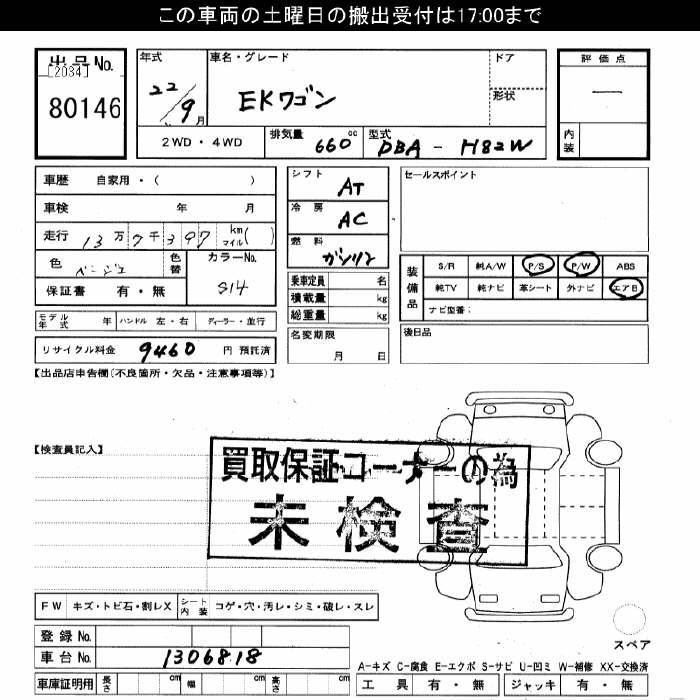 この車両の土曜日の搬出受付は17:00まで
出品No.
[2034]
80146
年式 22/9月
車名・グレード EKワゴン
ドア
形状
評価点 —
内装
2WD・4WD
排気量 660cc
型式 DBA-H82W
車歴 自家用・( )
車検 年 月
走行 13万7千397 km マイル( )
色 ベージュ
色替
カラーNo. S14
保証書 有・無
モデル年式 年 ハンドル 左・右 ディーラー・並行
リサイクル料金 9460 円 預託済
シフト AT
冷房 AC
燃料 ガソリン
乗車定員 名
積載量 kg
総重量 kg
名変期限
月 日
セールスポイント
装備品
S/R 純A/W P/S P/W ABS
純TV 純ナビ 革シート 外ナビ エアB
ナビ型番:
後日品
【出品店申告欄(不良箇所・欠品・注意事項等)】
【検査員記入】
買取保証コーナーの為
未検査
FW キズ・トビ石・割レX シート内装 コゲ・穴・汚レ・シミ・破レ・スレ
登録No.
車台No. 1306818
車庫証明用 長さ cm 幅 cm 高さ cm
スペア
A-キズ C-腐食 E-エクボ S-サビ U-凹ミ W-補修 XX-交換済
工具 有・無 ジャッキ 有・無